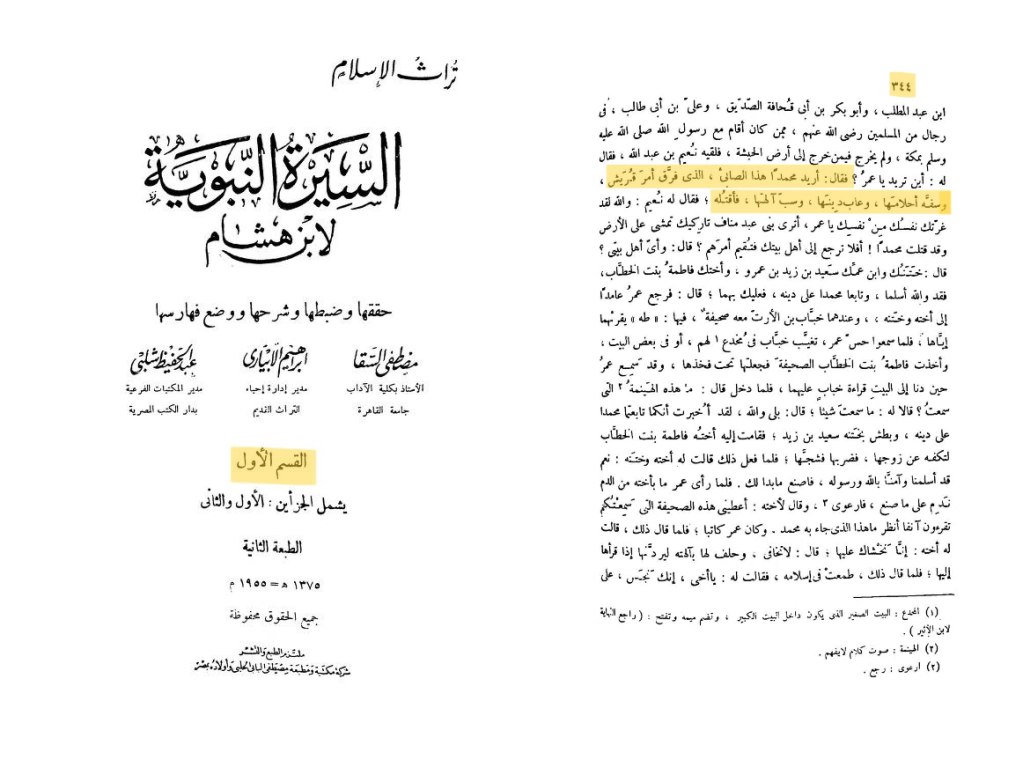 تراث الإسلام
السيرة النبوية
لابن هشام
حققها وضبطها وشرحها ووضع فهارسها
مصطفى السقا
ابراهيم الأبيارى
عبد الحفيظ شلبى
الأستاذ بكلية الآداب
مدير إدارة إحياء
مدير المكتبات الفرعية
جامعة القاهرة
التراث القديم
بدار الكتب المصرية
القسم الأول
يشمل الجزأين : الأول والثانى
الطبعة الثانية
١٣٧٥ ھ = ١٩٥٥ م
جميع الحقوق محفوظة
ملتزم الطبع والنشر
شركة مكتبة ومطبعة مصطفى البابى الحلبى وأولاده بمصر
٣٤٤
ابن عبد المطلب ، وأبو بكر بن أبى قُحافة الصّدّيق ، وعلىّ بن أبى طالب ، فى
رجال من المسلمين رضى الله عنهم ، ممن كان أقام مع رسول الله صلى الله عليه
وسلم بمكة ، ولم يخرج فيمن خرج إلى أرض الحبشة ، فلقيه نُعيم بن عبد الله ، فقال
له : أين تريد يا عمرُ ؟ فقال: أريد محمدًا هذا الصابىْ ، الذى فرّق أمرَ قُريش ،
وسفَّه أحلامَها ، وعاب دينَها ، وسبّ آلهتَها ، فأقتُله ؛ فقال له نُعيم : والله لقد
غرّتك نفسُك مِنْ نفسِك يا عمر ، أترى بنى عبد مناف تاركيك تمشى على الأرض
وقد قتلت محمدًا ! أفلا ترجع إلى أهل بيتك فتُقيم أمرَهم ؟ قال: وأىّ أهل بيتى ؟
قال : خَتَنُك وابن عمّك سَعيد بن زيد بن عمرو ، وأختك فاطمةُ بنت الخطَّاب،
فقد والله أسلما ، وتابعا محمدا على دينه ، فعليك بهما ؛ قال : فرجع عمرُ عامدًا
إلى أخته وخَتنه ، وعندهما خبَّاب بن الأرتّ معه صحيفةٌ ، فيها : « طه » يقرئهما
إيَّاها ، فلما سمعوا حسّ عمر ، تغيَّب خبَّاب فى مُخدع ١ لهم ، أو فى بعض البيت ،
وأخذت فاطمةُ بنت الخطَّاب الصحيفةَ فجعلتها تحت فخذها ، وقد سَمِع عمرُ
حين دنا إلى البيت قراءة خبابٍ عليهما ، فلما دخل قال : ما هذه الهَينمةُ ٢ التى
سمعتُ ؟ قالا له : ما سمعتَ شيئا ؛ قال: بلى والله ، لقد أُخبرت أنكما تابعتما محمدا
على دينه ، وبطش بخَتنه سعيد بن زيد ؛ فقامت إليه أختُه فاطمة بنت الخطَّاب
لتكفه عن زوجها ، فضربها فشجَّها ؛ فلما فعل ذلك قالت له أخته وختَنه : نعم
قد أسلمنا وآمنَّا بالله ورسوله ، فاصنع مابدا لك . فلما رأى عمر ما بأخته من الدم
نَدِم على ما صنع ، فارعوى ٣ ، وقال لأخته : أعطينى هذه الصحيفة التى سَمِعتُكُم
تقرءون آنفا أنظر ماهذا الذى جاء به محمد . وكان عمر كاتبا ؛ فلما قال ذلك ، قالت
له أخته : إنَّا نَخْشاك عليها ؛ قال : لاتخافى ، وحلف لها بآلهته ليردَّنها إذا قرأها
إليها ؛ فلما قال ذلك ، طمعتْ فى إسلامه ، فقالت له : ياأخى ، إنك نَجَس ، على
(١) المخدع : البيت الصغير الذى يكون داخل البيت الكبير ، وتضم ميمه وتفتح : ( راجع النهاية
لابن الأثير ) .
(٢) الهينمة : صوت كلام لايفهم .
(٢) ارعوى : رجع .